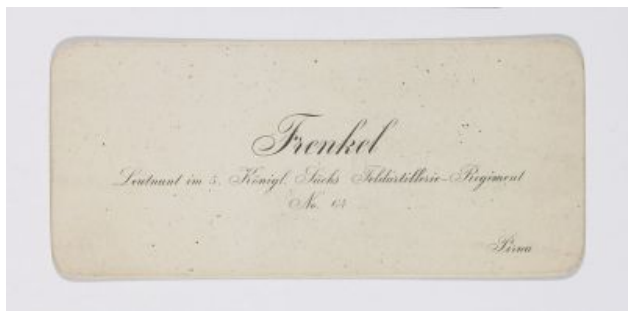 Frenkel
Leutnant im 5. Königl. Sächs Feldartillerie-Regiment
No. 64
Pirna